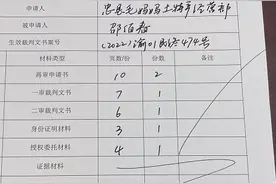 申请人 忠县毛妈妈土特产经营部
被申请人 邵佰春
生效裁判文书案号 (2022)渝01民终474号
材料类型 页数/份 份数
再审申请书 10 2
一审裁判文书 7 1
二审裁判文书 6 1
身份证明材料 3 1
授权委托材料 4 1
证据材料